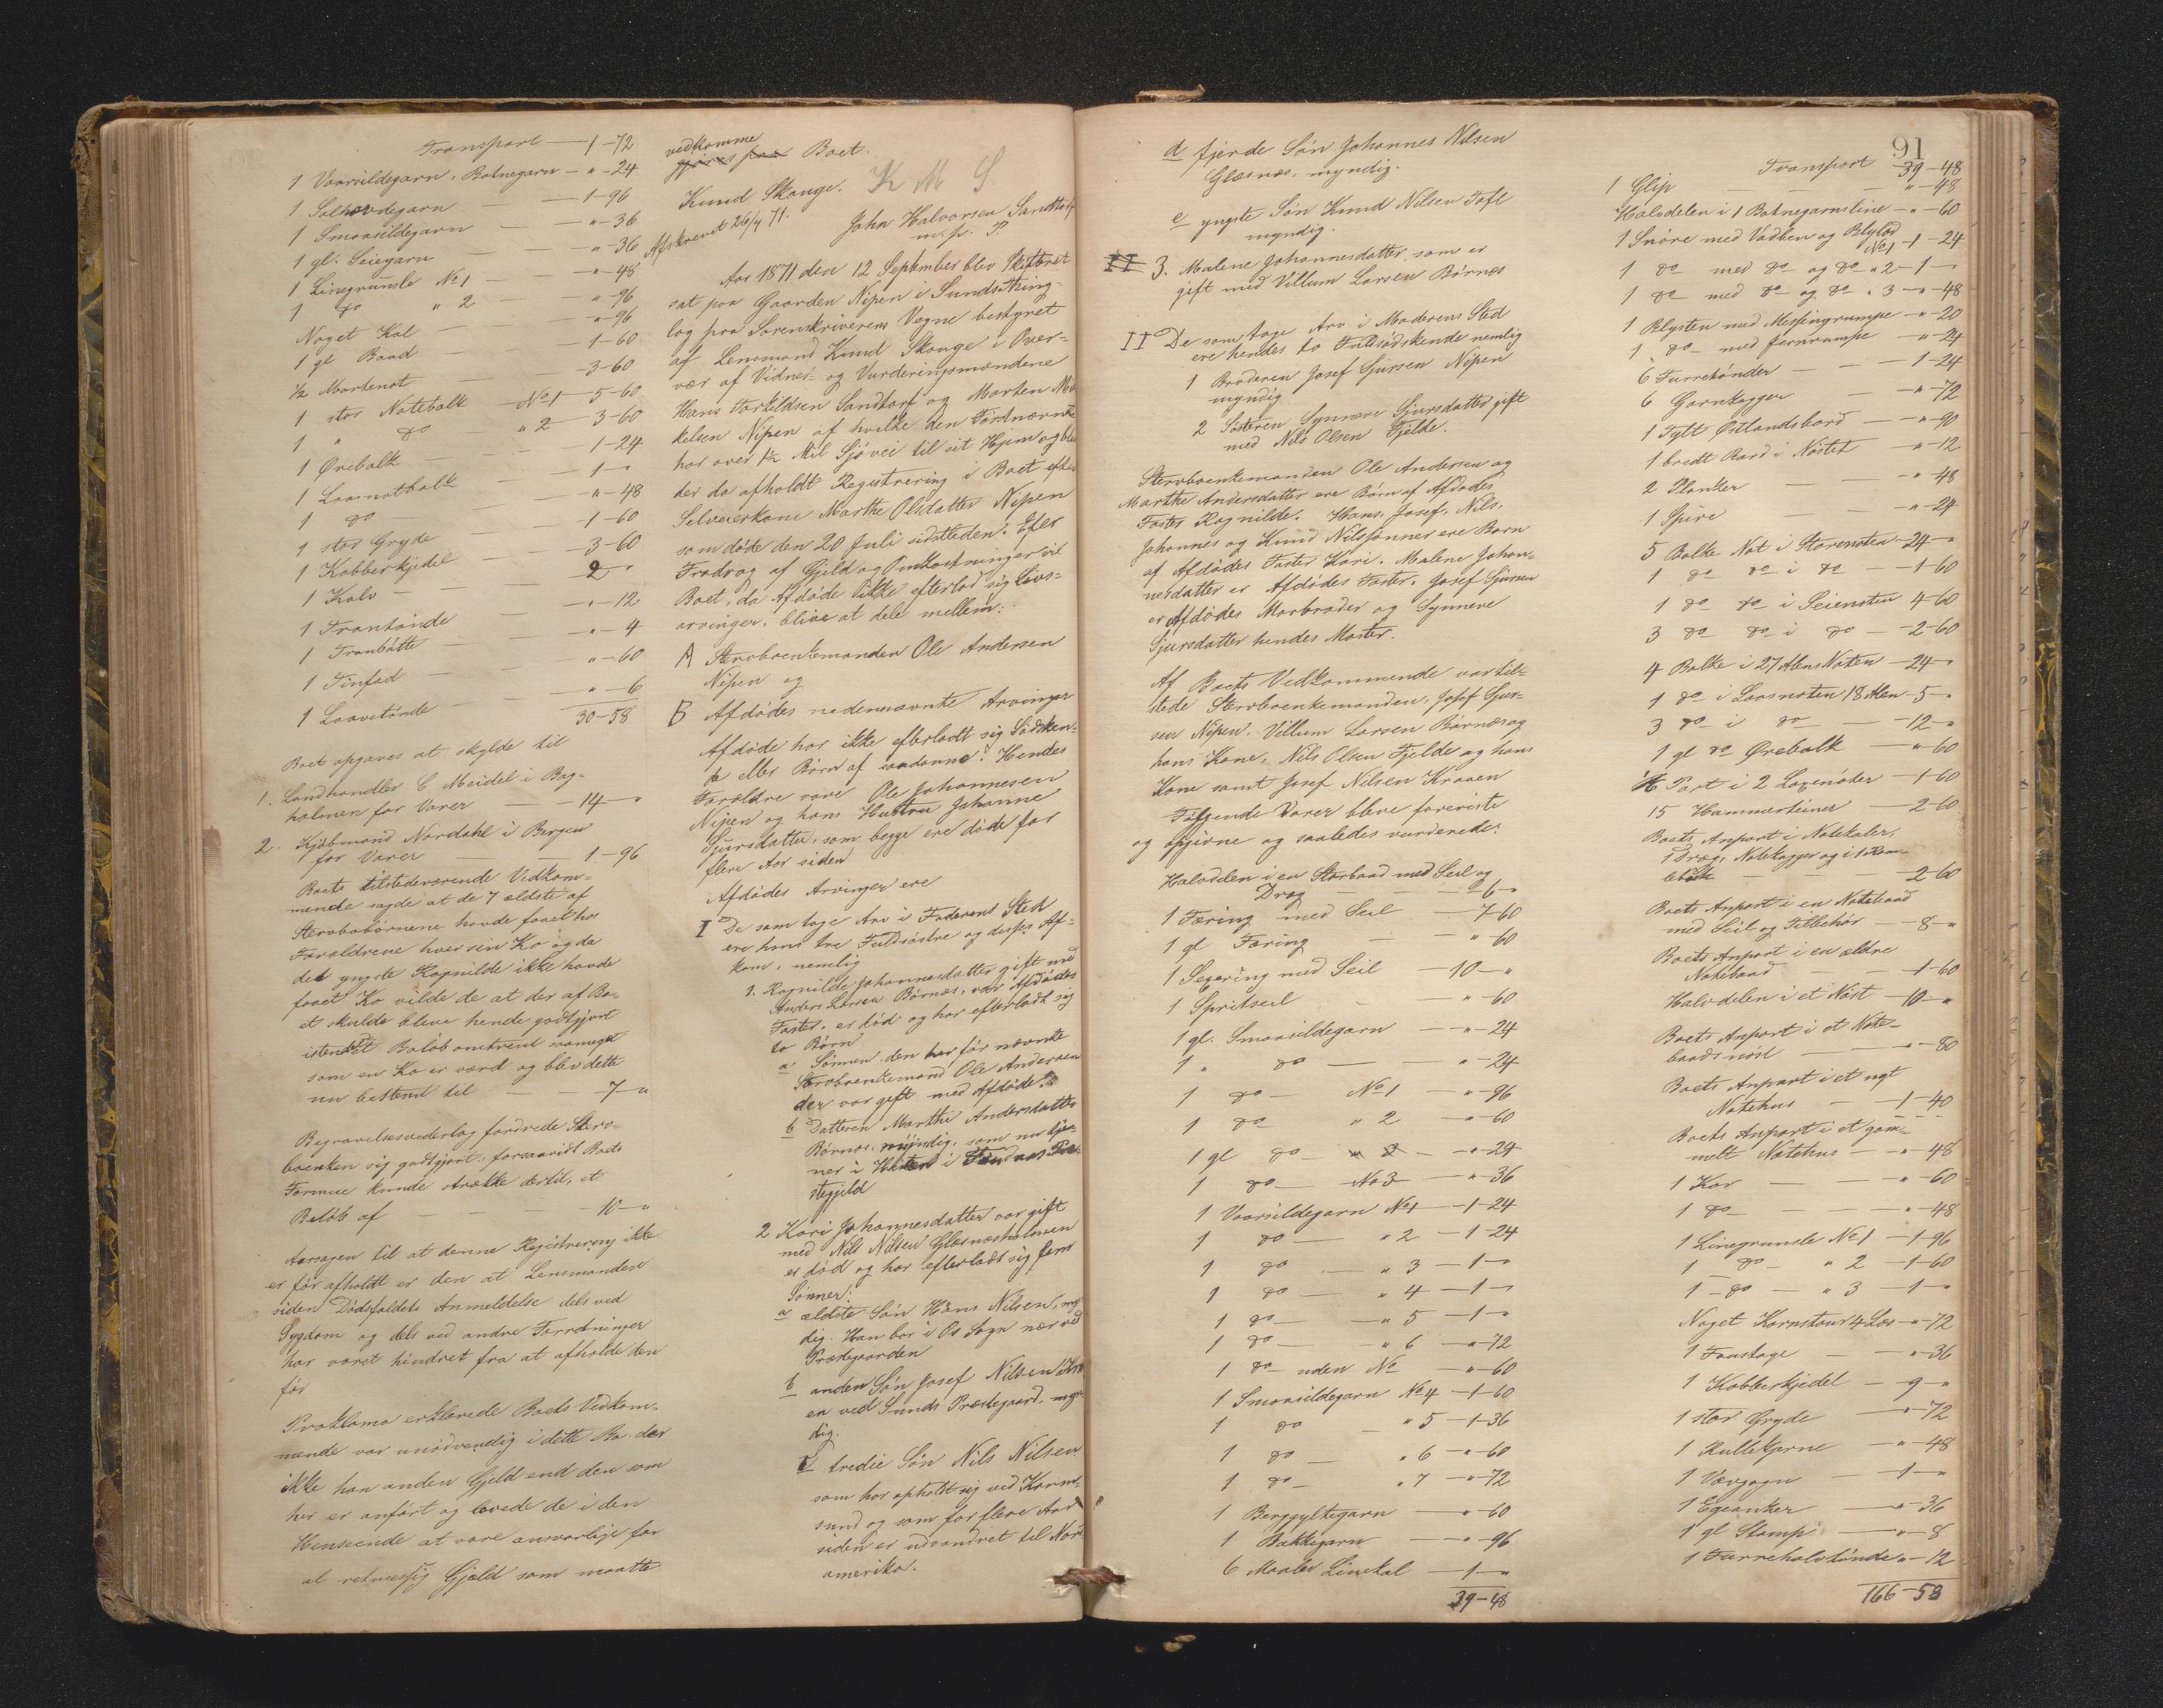 Transport — 1-72
1 Vaarsildegarn, Botnegarn — " - 24
1 Solhovdegarn — 1-96
1 Smaasildegarn — " - 36
1 gl. Seiegarn — " - 36
1 Linegrunsle No 1 — " - 48
1 do " 2 — " - 96
Noget Kal — " - 96
1 gl Baad — 1-60
1/2 Mortenot — 3-60
1 stor Notebalk No 1 — 5-60
1 " do " 2 — 3-60
1 Ørebalk — 1-24
1 Laasnotbalk — 1 - "
1 do — " - 48
1 stor Gryde — 1-60
1 Kobberkjedel — 3-60
1 Kalv — 2 "
1 Trantønde — " - 12
1 Tranbøtte — " - 4
1 Tinfad — " - 60
1 Laavetønde — " - 6
30-58
Boet opgaves at skylde til
1. Landhandler C Meidel i Bag-
holmen for Varer — 14 - "
2. Kjøbmand Nordahl i Bergen
for Varer — 1-96
Boets tilstedeværende Vedkom-
mende sagde at de 7 ældste af
Stervbobørnene havde faaet hos
Forældrene hver sin Ko og da
det yngste Ragnilde ikke havde
faaet Ko vilde de at der af Bo-
et skulde blive hende godtgjort
istedet et Beløb omtrent saameget
som en Ko er værd og blev dette
nu bestemt til — 7 - "
Begravelsesvederlag fordrede Sterv-
boenken sig godtgjort, forsaavidt Boets
Formue kunde strække dertil, et
Beløb af — 10 - "
Aarsagen til at denne Registrering ikke
er før afholdt er den at Lensmanden
siden Dødsfaldets Anmeldelse dels ved
Sygdom og dels ved andre Forretninger
har været hindret fra at afholde den
før
Proklama erklærede Boets Vedkom-
mende var unødvendig i dette Bo, der
ikke har anden Gjeld end den som
her er anført og lovede de i den
Henseende at være ansvarlige for
al retmæssig Gjæld som maatte
vedkomme
gjøres paa Boet.
Knud Skauge. K M S
Afskrevet 26/4 71. John Halvorsen Sandtorf
m. p. P.
Aar 1871 den 12 September blev Skifteret
sat paa Gaarden Nipen i Sunds Thing-
lag paa Sorenskriverens Vegne bestyret
af Lensmand Knud Skauge i Over-
vær af Vidner- og Vurderingsmændene
Hans Torkildsen Sandtorf og Morten Mi
kelsen Nipen af hvilke den Førstnævnte
har over 1 1/2 Mil Sjøvei til sit Hjem og blev
der da afholdt Registrering i Boet efter
Selveierkone Marthe Olsdatter Nipen
som døde den 20 Juli sidstleden. Efter
Fradrag af Gjeld og Omkostninger vil
Boet, da Afdøde ikke efterlod sig Livs-
arvinger, blive at dele mellem:
A Stervboenkemanden Ole Andersen
Nipen og
B Afdødes nedennævnte Arvinger
Afdøde har ikke efterladt sig Sødsken-
de eller Børn af saadanne. Hendes
Forældre vare Ole Johannesen
Nipen og hans Hustru Johanne
Sjursdatter, som begge ere døde for
flere Aar siden
Afdødes Arvinger ere
I De som tage Arv i Faderens Sted
ere hans tre Fuldsøstre og disses Af-
kom, nemlig
1. Ragnilde Johannesdatter gift med
Anders Larsen Børnæs, var Afdødes
Faster, er død og har efterladt sig
to Børn
a Sønnen den her før nævnte
Stervboenkemand Ole Andersen
der var gift med Afdøde.
b Datteren Marthe Andersdatter
Børnæs, myndig, som nu tje-
ner i i Præ-
stegjeld
2 Kari Johannesdatter var gift
med Nils Nilsen Glæsnæsholmen
er død og har efterladt sig fem
Sønner:
a ældste Søn Hans Nilsen, myn
dig. Han bor i Os Sogn nær ved
Præstegaarden
b anden Søn Josef Nilsen Kraa
en ved Sunds Præstegaard, myn
dig.
c tredie Søn Nils Nilsen
som har opholdt sig ved Karmt-
sund og som for flere Aar
siden er udvandret til Nord
amerika.
91
d fjerde Søn Johannes Nilsen
Glæsnæs, myndig.
e yngste Søn Knud Nilsen Toft
myndig.
II 3. Malene Johannesdatter, som er
gift med Villum Larsen Børnæs
II De som tage Arv i Moderens Sted
ere hendes to Fuldsødskende nemlig
1 Broderen Josef Sjursen Nipen
myndig
2 Søsteren Synneve Sjursdatter gift
med Nils Olsen Fjelde.
Stervboenkemanden Ole Andersen og
Marthe Andersdatter ere Børn af Afdødes
Faster Ragnilde. Hans, Josef, Nils,
Johannes og Knud Nilssønner ere Børn
af Afdødes Faster Kari. Malene Johan-
nesdatter er Afdødes Faster. Josef Sjursen
er Afdødes Morbroder og Synneve
Sjursdatter hendes Moster.
Af Boets Vedkommende var til-
stede Stervboenkemanden, Josef Sjur-
sen Nipen, Villum Larsen Børnæs og
hans Kone, Nils Olsen Fjelde og hans
Kone samt Josef Nilsen Kraaen
Følgende Varer bleve foreviste
og opgivne og saaledes vurderede:
Halvdelen i en Storbaad med Seil og
Dræg — 6 - "
1 Færing med Seil — 7-60
1 gl Færing — " - 60
1 Sexæring med Seil — 10 - "
1 Spritseil — " - 60
1 gl. Smaasildegarn — " - 24
1 " do — " - 24
1 do No 1 — " - 96
1 do " 2 — " - 60
1 gl do " 2 — " - 24
1 do No 3 — " - 36
1 Vaarsildegarn No 1 — 1-24
1 do " 2 — 1-24
1 do " 3 — 1 - "
1 do " 4 — 1 - "
1 do " 5 — 1 - "
1 do " 6 — " - 72
1 do uden No — " - 60
1 Smaasildegarn No 4 — 1-60
1 do " 5 — 1-36
1 do " 6 — " - 60
1 do " 7 — " - 72
1 Berggyltegarn — " - 60
1 Bakkegarn — " - 96
6 Maaler Linekal — 1 - "
39-48
Transport 39-48
1 Glip — " - 48
Halvdelen i 1 Botnegarnsline — " - 60
1 Snøre med Vadben og Blylod No 1 — 1-24
1 do med do og do " 2 — 1 - "
1 do med do og do " 3 — " - 48
1 Blysten med Messingrumpe — " - 20
1 do med Jernrumpe — " - 24
6 Furretønder — 1-24
6 Garnkagger — " - 72
1 Tylt Østlandsbord — " - 90
1 bredt Bord i Nøstet — " - 12
2 Planker — " - 48
1 Spire — " - 24
5 Balke Not i Storenoten — 24 - "
1 do do i do — 1-60
1 do do i Seienoten 4-60
3 do do i do — 2-60
4 Balke i 27 Alens Noten — 24 - "
1 do i Laasnoten 18 Alen — 5 - "
3 do i do — 12 - "
1 gl do Ørebalk — " - 60
Part i 2 — 1-60
15 — 2-60
Boets Anpart i Notekaler,
1 Dræg, Notekagger og i 1 Rem-
— 2-60
Boets Anpart i en Notebaad
med Seil og Tilbehør — 8 - "
Boets Anpart i en ældre
Notebaad — 1-60
Halvdelen i et Nøst — 10 - "
Boets Anpart i et Note-
baadsnøst — " - 80
Boets Anpart i et nyt
Notehus — 1-40
Boets Anpart i et gam-
melt Notehus — " - 48
1 Kar — " - 60
1 do — " - 48
1 Linegrunsle No 1 — 1-96
1 do " 2 — 1-60
1 do " 3 — 1 - "
Noget Kornstaur 4 Læs — " - 72
1 Faustage — " - 36
1 Kobberkjedel — 9 - "
1 stor Gryde — " - 72
1 Kullekjerne — " - 48
1 Vævgogn — 1 - "
1 Egeanker — " - 36
1 gl Stamp — " - 8
1 Furrehalvtønde " - 12
166-58